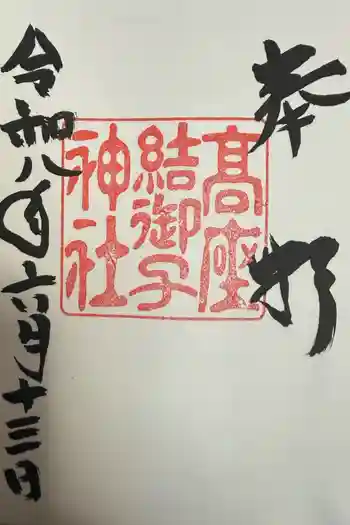 奉拝
髙座
結御子
神社
令和八年月十三日